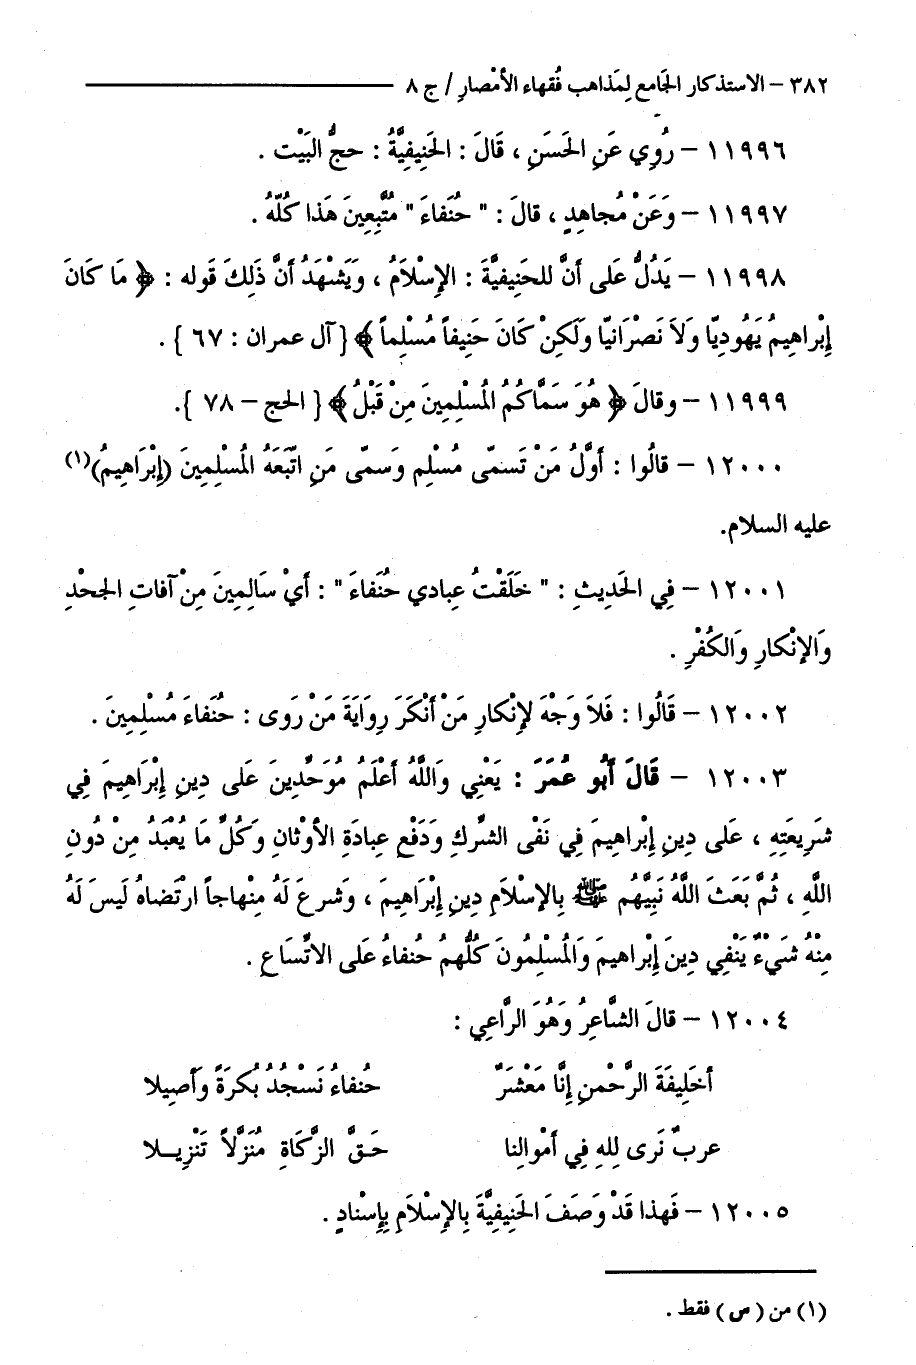 ٣٨٢ – الاستذكار الجَامع لِمَذاهب فُقهاء الأمْصارِ / ج ٨
١١٩٩٦ – رُوِي عَنِ الحَسَنِ ، قَالَ : الحَنِيفِيَّةُ : حجُّ البَيْت .
١١٩٩٧ – وَعَنْ مُجاهِدٍ ، قالَ : " حُنَفاءَ " مُتَّبِعِينَ هَذا كُلّهُ .
١١٩٩٨ – يَدُلُّ عَلى أَنَّ للحَنِيفيَّةَ : الإِسْلَامُ ، وَيَشْهَدُ أنَّ ذَلِكَ قَوله : ﴿ مَا كَانَ
إبْراهِيمُ يَهُودِيّا وَلاَ نَصْرَانِيّا وَلَكِنْ كَانَ حَنِيفاً مُسْلِماً ﴾ { آل عمران : ٦٧ } .
١١٩٩٩ – وقالَ ﴿ هُوَ سَمَّاكُمُ المُسْلِمِينَ مِنْ قَبْلُ ﴾ { الحج – ٧٨ }.
١٢٠٠٠ – قالُوا : أَوَّلُ مَنْ تَسمّى مُسْلِم وَسمّى مَنِ اتّبَعَهُ المُسْلِمِينَ (إِبْرَاهِيمُ)(١)
عليه السلام.
١٢٠٠١ – فِي الحَدِيثِ : " خَلَقْتُ عِبادي حُنَفاءَ " : أَيْ سَالِمِينَ مِنْ آفاتِ الجحْدِ
وَالإنْكارِ وَالكُفْرِ .
١٢٠٠٢ – قَالُوا : فَلاَ وَجْهَ لإنْكارِ مَنْ أَنْكَرَ رِوَايَةَ مَنْ رَوى : حُنَفاءَ مُسْلِمِينَ .
١٢٠٠٣ – قَالَ أَبُو عُمَرَ : يَعْنِي وَاللَّهُ أعْلَمُ مُوَحِّدِينَ عَلى دِينِ إِبْرَاهِيمَ فِي
شَرِيعَتِهِ ، عَلى دِينِ إِبْرَاهِيمَ فِي نَفْى الشِّركِ وَدَفْعِ عِبادَةِ الأوْثانِ وَكُلِّ مَا يُعْبَدُ مِنْ دُونِ
اللَّهِ ، ثُمَّ بَعَثَ اللَّهُ نَبِيَّهُم ﷺ بِالإسْلَامِ دِينِ إِبْرَاهِيمَ ، وَشرعَ لَهُ مِنْهاجاً ارْتَضاهُ لَيسَ لَهُ
مِنْهُ شَيْءٌ يَنْفِي دِينَ إِبْراهِيمَ وَالمُسْلِمُونَ كُلُّهمُ حُنفاءُ عَلى الاتِّسَاعِ .
١٢٠٠٤ – قالَ الشَّاعِرُ وَهُوَ الرَّاعِي :
أخَلِيفَةَ الرَّحْمنِ إنَّا مَعْشَرٌ حُنفاءُ نَسْجُدُ بُكرَةً وَأصِيلا
عربٌ نَرى للهِ فِي أمْوالِنا حَقَّ الزَّكَاةِ مُنَزَّلاً تَنْزِيلا
١٢٠٠٥ – فَهذا قَدْ وَصَفَ الحَنِيفِيَّةَ بِالإسْلَامِ بِإسْنادٍ .
(١) من ( ص ) فقط .